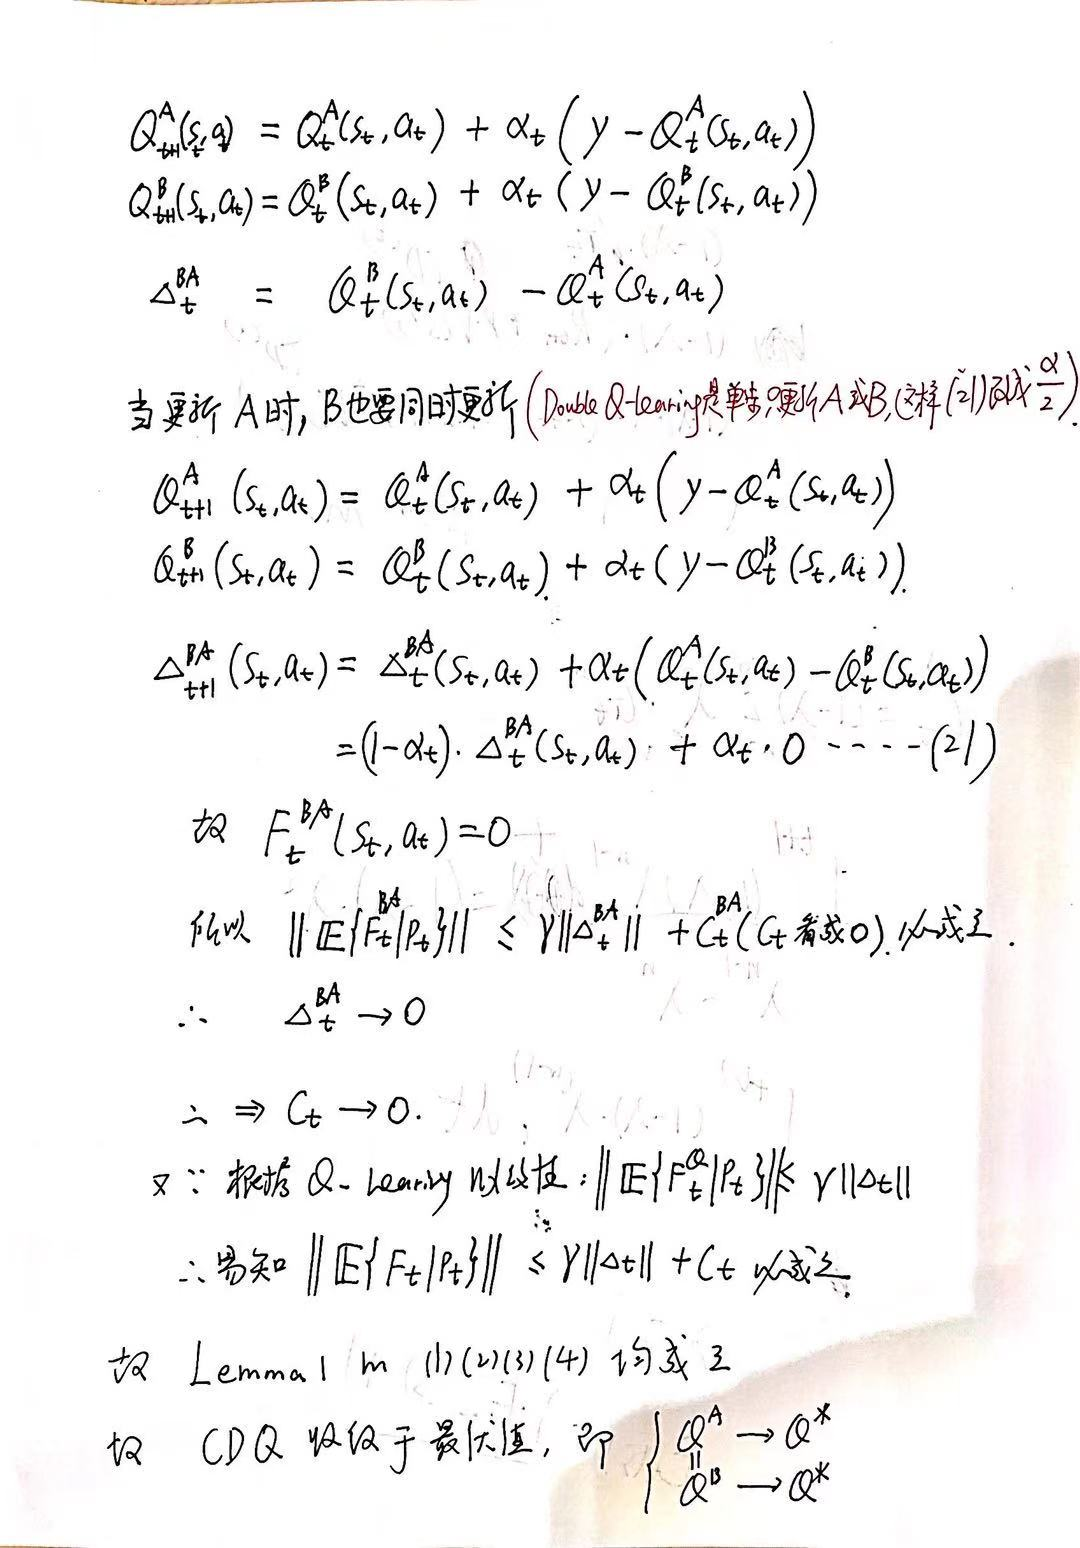 Q^A_{t+1}(s_t,a_t) = Q^A_t(s_t,a_t) + α_t(y - Q^A_t(s_t,a_t))
Q^B_{t+1}(s_t,a_t) = Q^B_t(s_t,a_t) + α_t(y - Q^B_t(s_t,a_t))
Δ^{BA}_t = Q^B_t(s_t,a_t) - Q^A_t(s_t,a_t)
当更新A时,B也要同时更新(Double Q-learning是单步只更新A或B,这样(21)成 α/2).
Q^A_{t+1}(s_t,a_t) = Q^A_t(s_t,a_t) + α_t(y - Q^A_t(s_t,a_t))
Q^B_{t+1}(s_t,a_t) = Q^B_t(s_t,a_t) + α_t(y - Q^B_t(s_t,a_t)).
Δ^{BA}_{t+1}(s_t,a_t) = Δ^{BA}_t(s_t,a_t) + α_t(Q^A_t(s_t,a_t) - Q^B_t(s_t,a_t))
=(1-α_t)·Δ^{BA}_t(s_t,a_t) + α_t·0 -----(21)
故 F^{BA}_t(s_t,a_t)=0
所以 ||E{F^{BA}_t|P_t}|| ≤ γ||Δ^{BA}_t|| + C^{BA}_t (C_t 看成0). 成立.
∴ Δ^{BA}_t → 0
∴ ⇒ C_t → 0.
又∵ 根据 Q-learning 收敛性: ||E{F^Q_t|P_t}|| ≤ γ||Δ_t||
∴易知 ||E{F_t|P_t}|| ≤ γ||Δ_t|| + C_t 成立.
故 Lemma 1 (1)(2)(3)(4) 均成立
故 CDQ 收敛于最优值, 即 { Q^A → Q*
||
Q^B → Q*